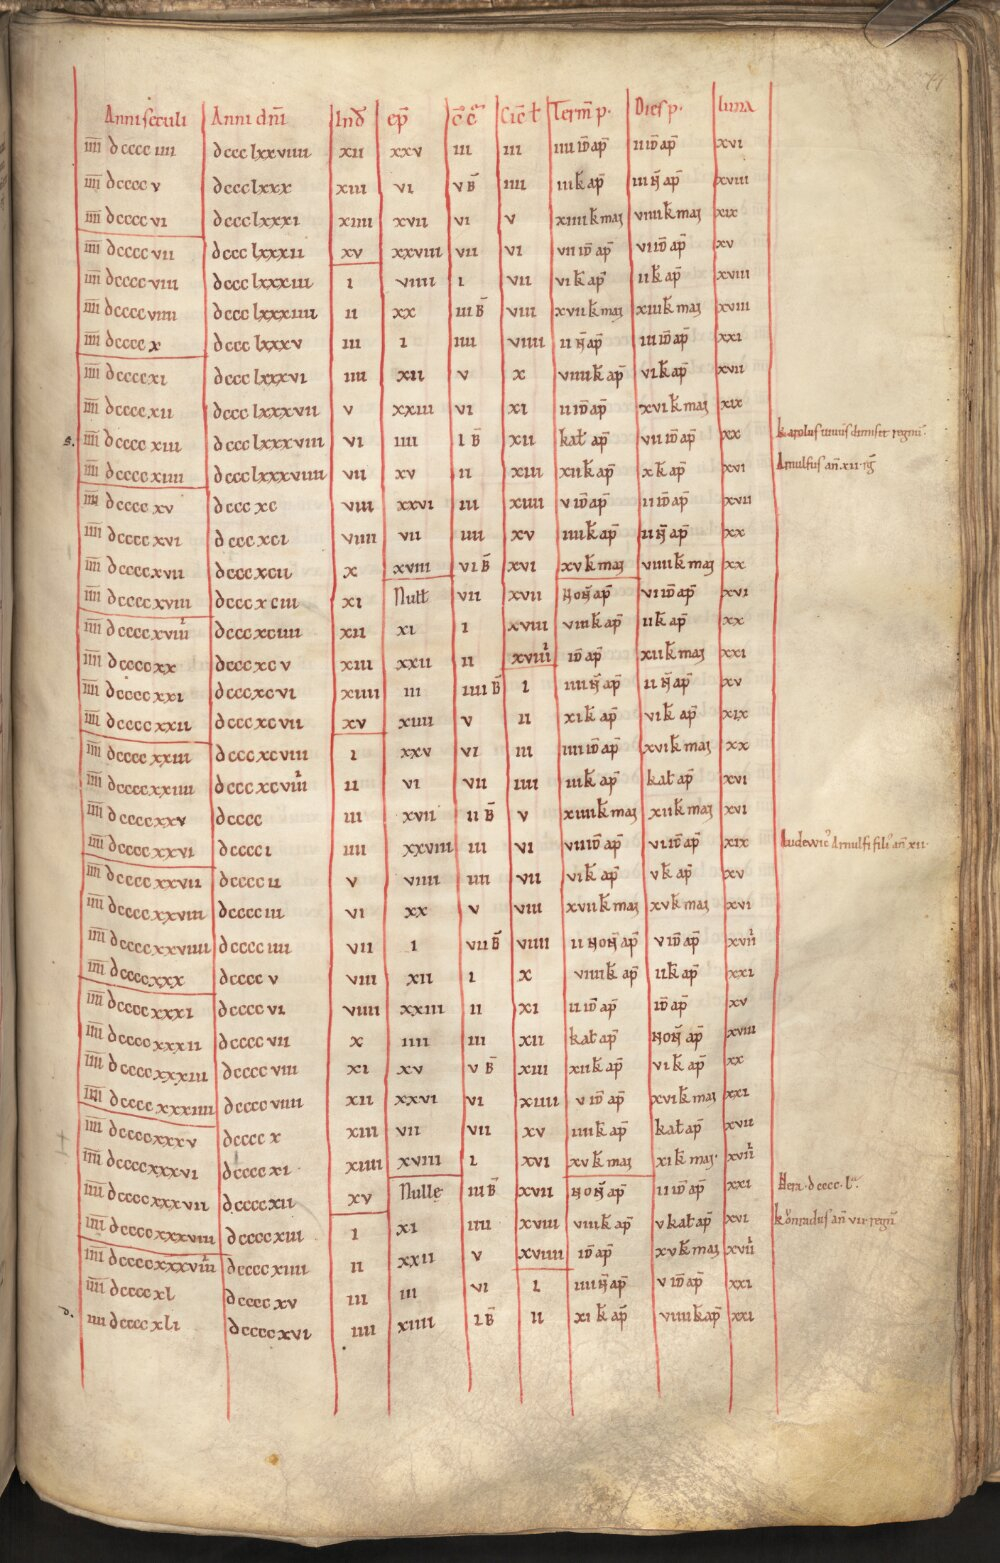 77
Anni seculi Anni dn̄i Ind̄ ep̄ c̄c̄ Cic̄ ł Term̄ p. Dies p. luna
īīīī dcccc iiii dccc lxxviiii xii xxv iii iii iiii id̄ ap̄ ii id̄ ap̄ xvi
īīīī dcccc v dccc lxxx xiii vi v B̄ iiii iii k̄ ap̄ iii n̄ ap̄ xviii
īīīī dcccc vi dccc lxxxi xiiii xvii vi v xiiii k̄ mai viiii k̄ mai xix
īīīī dcccc vii dccc lxxxii xv xxviii vii vi vii id̄ ap̄ vi id̄ ap̄ xv
īīīī dcccc viii dccc lxxxiii i viiii i vii vi k̄ ap̄ ii k̄ ap̄ xviii
īīīī dcccc viiii dccc lxxxiiii ii xx iii B̄ viii xvii k̄ mai xiii k̄ mai xviii
īīīī dcccc x dccc lxxxv iii i iiii viiii ii n̄ ap̄ iii id̄ ap̄ xxi
īīīī dcccc xi dccc lxxxvi iiii xii v x viiii k̄ ap̄ vi k̄ ap̄ xvii
īīīī dcccc xii dccc lxxxvii v xxiii vi xi ii id̄ ap̄ xvi k̄ mai xix
s. īīīī dcccc xiii dccc lxxxviii vi iiii i B̄ xii kał ap̄ vii id̄ ap̄ xx Karolus dimisit regnū.
īīīī dcccc xiiii dccc lxxxviiii vii xv ii xiii xii k̄ ap̄ x k̄ ap̄ xvi Arnulfus an̄ xii rḡ
īīīī dcccc xv dccc xc viii xxvi iii xiiii v id̄ ap̄ ii id̄ ap̄ xvii
īīīī dcccc xvi dccc xci viiii vii iiii xv iiii k̄ ap̄ ii n̄ ap̄ xx
īīīī dcccc xvii dccc xcii x xviii vi B̄ xvi xv k̄ mai viiii k̄ mai xx
īīīī dcccc xviii dccc xciii xi Nulł vii xvii Noñ ap̄ vi id̄ ap̄ xvi
īīīī dcccc xviiii dccc xciiii xii xi i xviii viii k̄ ap̄ ii k̄ ap̄ xx
īīīī dcccc xx dccc xcv xiii xxii ii xviiii id̄ ap̄ xii k̄ mai xxi
īīīī dcccc xxi dccc xcvi xiiii iii iiii B̄ i iiii n̄ ap̄ ii n̄ ap̄ xv
īīīī dcccc xxii dccc xcvii xv xiiii v ii xi k̄ ap̄ vi k̄ ap̄ xix
īīīī dcccc xxiii dccc xcviii i xxv vi iii iiii id̄ ap̄ xvi k̄ mai xx
īīīī dcccc xxiiii dccc xcviiii ii vi vii iiii iii k̄ ap̄ kał ap̄ xvi
īīīī dcccc xxv dcccc iii xvii ii B̄ v xiiii k̄ mai xii k̄ mai xvi
īīīī dcccc xxvi dcccc i iiii xxviii iii vi viii id̄ ap̄ vi id̄ ap̄ xix Ludewic᷒ Arnulfi fili᷒ an̄ xii
īīīī dcccc xxvii dcccc ii v viiii iiii vii vi k̄ ap̄ v k̄ ap̄ xv
īīīī dcccc xxviii dcccc iii vi xx v viii xvii k̄ mai xv k̄ mai xvi
īīīī dcccc xxviiii dcccc iiii vii i vii B̄ viiii ii Noñ ap̄ v id̄ ap̄ xviii
īīīī dcccc xxx dcccc v viii xii i x viiii k̄ ap̄ ii k̄ ap̄ xxi
īīīī dcccc xxxi dcccc vi viiii xxiii ii xi ii id̄ ap̄ id̄ ap̄ xv
īīīī dcccc xxxii dcccc vii x iiii iii xii kał ap̄ Noñ ap̄ xviii
īīīī dcccc xxxiii dcccc viii xi xv v B̄ xiii xii k̄ ap̄ vi k̄ ap̄ xx
īīīī dcccc xxxiiii dcccc viiii xii xxvi vi xiiii v id̄ ap̄ xvi k̄ mai xxi
īīīī dcccc xxxv dcccc x xiii vii vii xv iiii k̄ ap̄ kał ap̄ xvii
īīīī dcccc xxxvi dcccc xi xiiii xviii i xvi xv k̄ mai xi k̄ mai xviii
īīīī dcccc xxxvii dcccc xii xv Nulle iii B̄ xvii Noñ ap̄ ii id̄ ap̄ xxi
īīīī dcccc xxxviii dcccc xiii i xi iiii xviii viii k̄ ap̄ v kał ap̄ xvi Kōnradus an̄ vii regn̄
īīīī dcccc xxxviiii dcccc xiiii ii xxii v xviiii id̄ ap̄ xv k̄ mai xviii
īīīī dcccc xl dcccc xv iii iii vi i iiii n̄ ap̄ v id̄ ap̄ xxi
iiii dcccc xli dcccc xvi iiii xiiii i B̄ ii xi k̄ ap̄ viiii k̄ ap̄ xxi